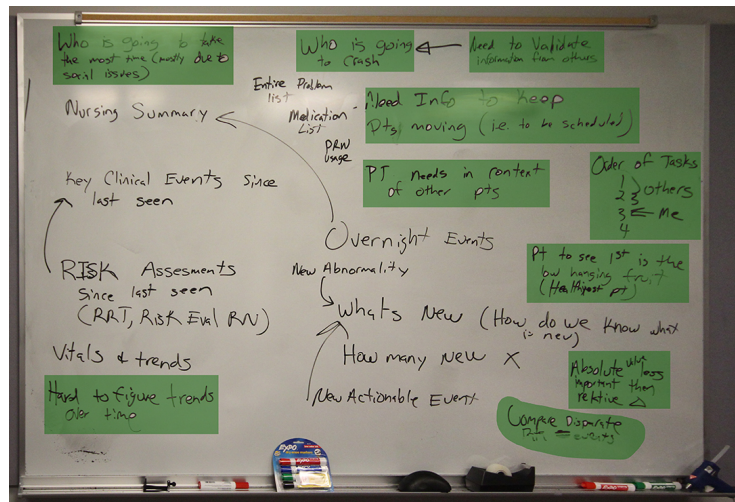 Who is going to take
the most time (mostly due to
social issues)
Who is going
to crash
Need to Validate
information from others
Entire Problem
list
Medication
List
PRN
usage
Need Info to Keep
Pts moving (i.e. to be scheduled)
Nursing Summary
PT needs in context
of other pts
Order of Tasks
1
2
3
4
Others
3
Me
Key Clinical Events since
last seen
Overnight Events
New Abnormality
Pt to see 1st is the
low hanging fruit
(Healthiest pt)
RISK Assesments
Since last seen
(RRT, Risk Eval RN)
Whats New (How do we know what
is new)
How many New X
Vitals & trends
Absolute val less
important then
relative Δ
Hard to figure trends
over time
New Actionable Event
Compare Disparate
events
EXPO